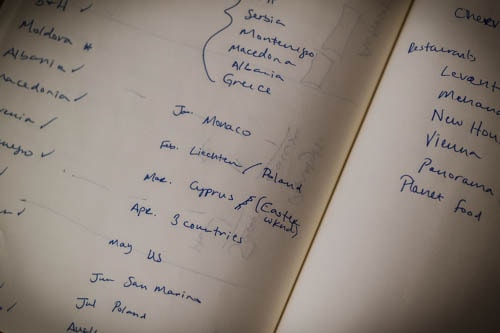 B+H ✓
Moldova *
Albania ✓
Macedonia ✓
Serbia
Montenegro
Macedona
Albania
Greece
Jan. Monaco
Feb. Liechten / Poland
Mar. Cyprus (Easter wknd)
Apr. 3 countries
May US
Jun San Marino
Jul Poland
Restaurants
Levant
New Hou
Vienna
Panorama
Planet food